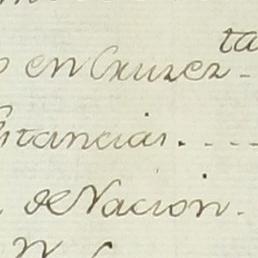 ta
o en Cruzez-
stancias. - - -
de Nacion.